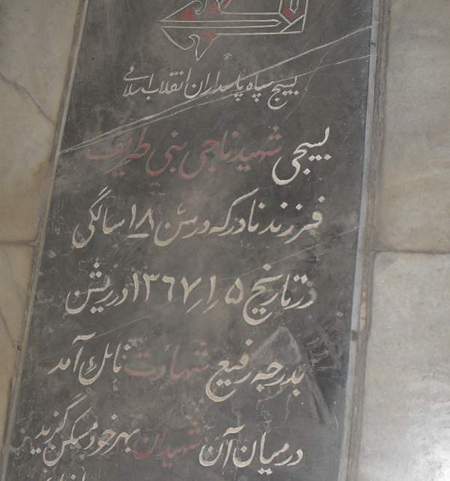 بسیج سپاه پاسداران انقلاب اسلامی
بسیجی شهید ناجی بنی طریف
فرزند نادر که در سن ۱۸ سالگی
در تاریخ ۱۳۶۷/۱/۵ در
بدرجه رفیع شهادت نائل آمد
در میان آن شهیدان بهر خود مسکن گزید